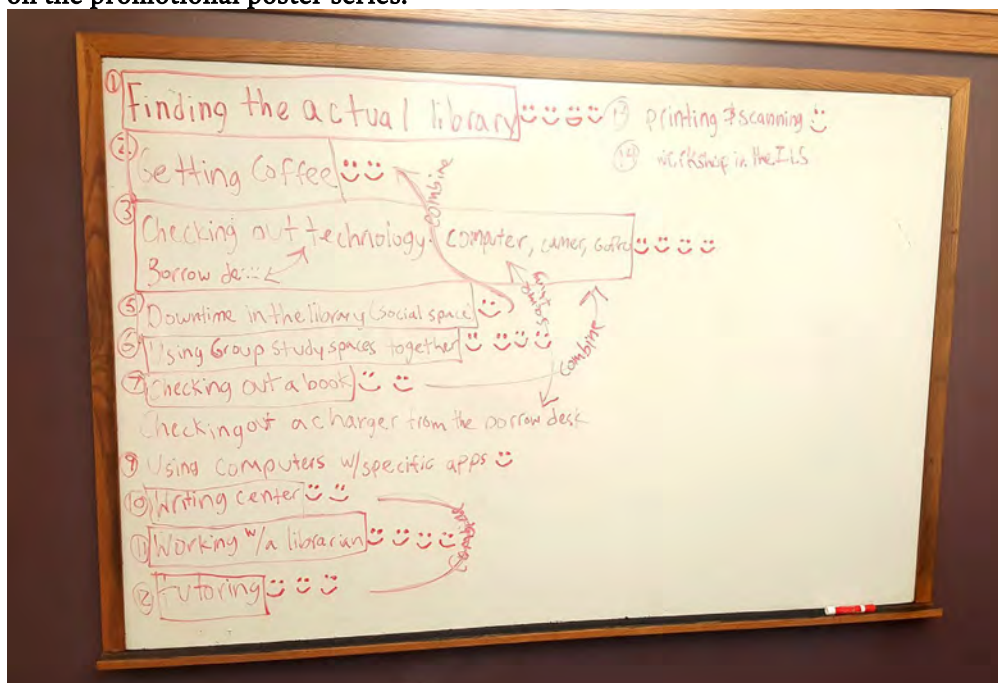 on the promotional poster series.
① Finding the actual library
② Getting Coffee
③ Checking out technology: computer, camer,
Borrow de
⑤ Downtime in the library (social space)
⑥ Using Group Study spaces together
⑦ Checking out a book
Checking out a charger from the borrow desk
9 Using computers w/specific apps
⑩ Writing center
⑪ Working w/a librarian
⑫ Tutoring
⑬ printing & scanning
⑭ workshop in the ILS
combine
combine
combine